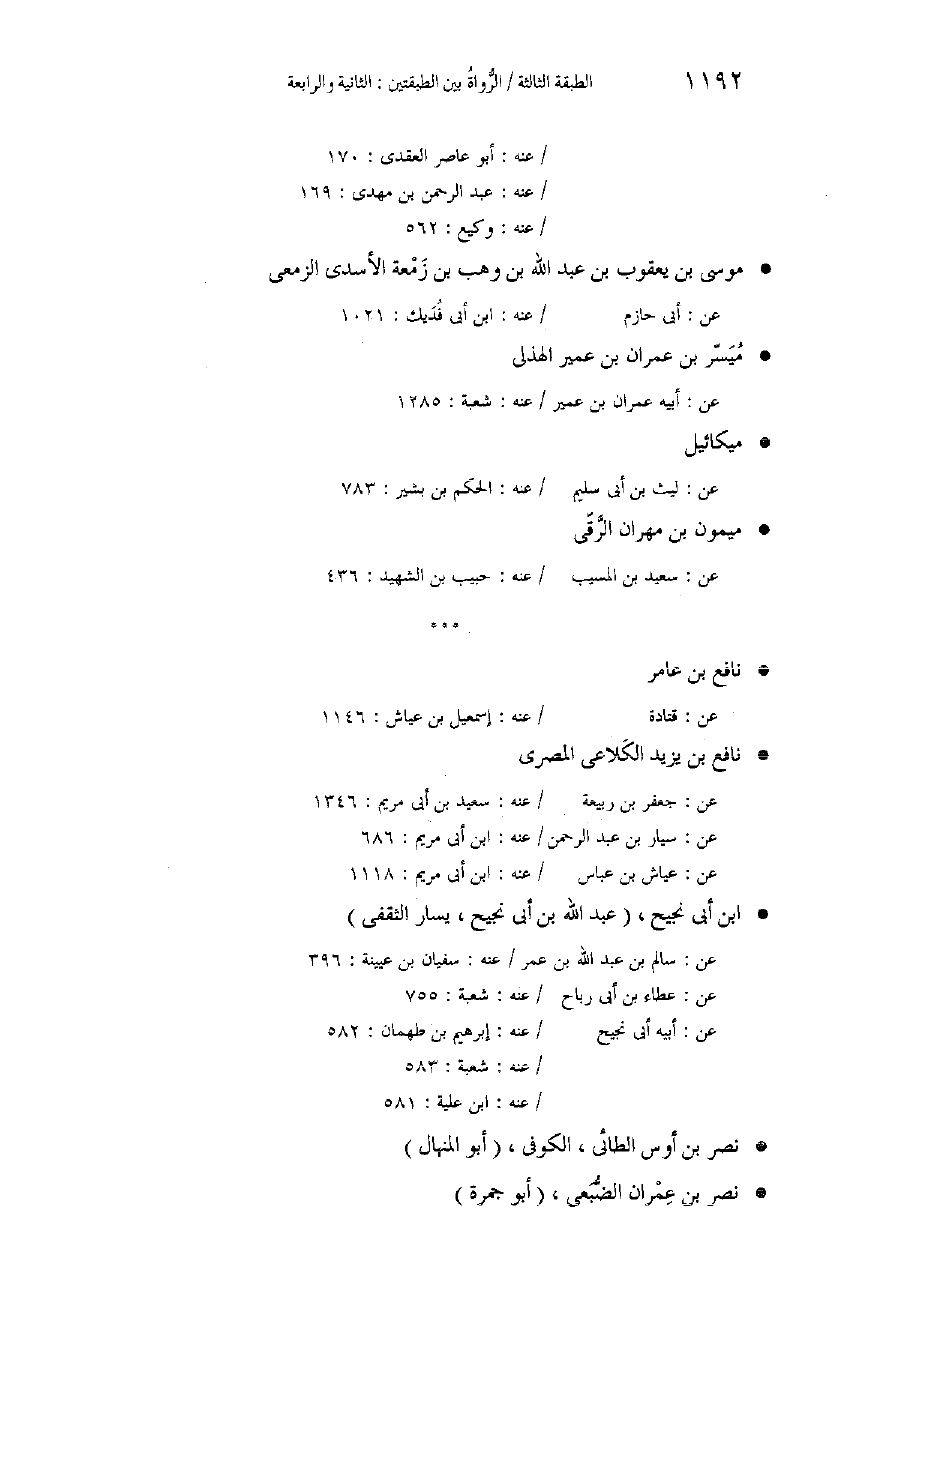 ١١٩٢ الطبقة الثالثة / الرُّواةُ بين الطبقتين : الثانية والرابعة
/ عنه : أبو عاصر العقدى : ١٧٠
/ عنه : عبد الرحمن بن مهدى : ١٦٩
/ عنه : وكيع : ٥٦٢
● موسى بن يعقوب بن عبد الله بن وهب بن زَمْعة الأسدى الزمعى
عن : أبى حازم / عنه : ابن أبى فُدَيك : ١٠٢١
● مُيَسّر بن عمران بن عمير الهذلى
عن : أبيه عمران بن عمير / عنه : شعبة : ١٢٨٥
● ميكائيل
عن : ليث بن أبى سليم / عنه : الحكم بن بشير : ٧٨٣
● ميمون بن مهران الرَّقّى
عن : سعيد بن المسيب / عنه : حبيب بن الشهيد : ٤٣٦
***
● نافع بن عامر
عن : قتادة / عنه : إسمعيل بن عياش : ١١٤٦
● نافع بن يزيد الكَلاعى المصرى
عن : جعفر بن ربيعة / عنه : سعيد بن أبى مريم : ١٣٤٦
عن : سيار بن عبد الرحمن / عنه : ابن أبى مريم : ٦٨٦
عن : عياش بن عباس / عنه : ابن أبى مريم : ١١١٨
● ابن أبى نجيح ، ( عبد الله بن أبى نجيح ، يسار الثقفى )
عن : سالم بن عبد الله بن عمر / عنه : سفيان بن عيينة : ٣٩٦
عن : عطاء بن أبى رباح / عنه : شعبة : ٧٥٥
عن : أبيه أبى نجيح / عنه : إبرهيم بن طهمان : ٥٨٢
/ عنه : شعبة : ٥٨٣
/ عنه : ابن علية : ٥٨١
● نصر بن أوس الطائى ، الكوفى ، ( أبو المنهال )
● نصر بن عِمْران الضُّبَعى ، ( أبو جمرة )